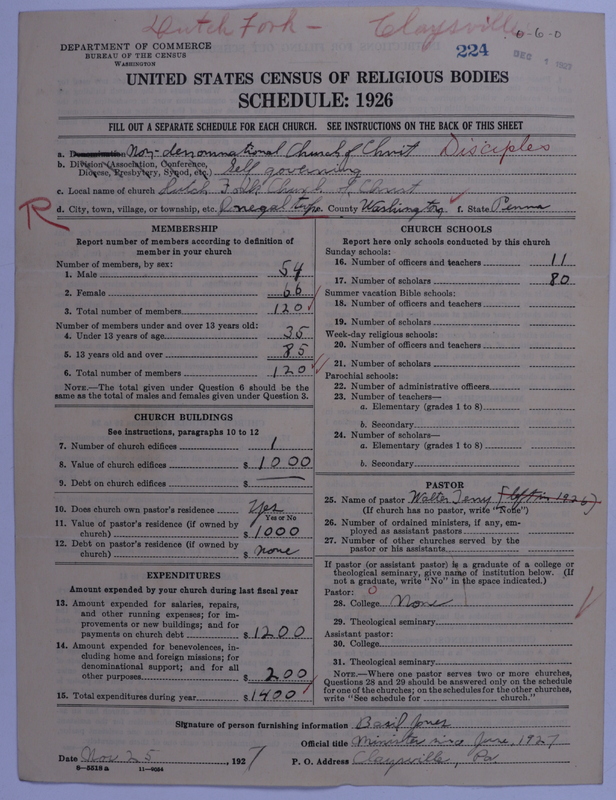 Dutch Fork - Claysville
6-6-0
DEPARTMENT OF COMMERCE
BUREAU OF THE CENSUS
WASHINGTON
224
DEC 1 1927
UNITED STATES CENSUS OF RELIGIOUS BODIES
SCHEDULE: 1926
FILL OUT A SEPARATE SCHEDULE FOR EACH CHURCH. SEE INSTRUCTIONS ON THE BACK OF THIS SHEET
a. Denomination Non-denominational Church of Christ Disciples
b. Division (Association, Conference, Diocese, Presbytery, Synod, etc.) Self governing
c. Local name of church Dutch Fork Church of Christ
R d. City, town, village, or township, etc. Donegal twp. County Washington f. State Penna
MEMBERSHIP
Report number of members according to definition of
member in your church
Number of members, by sex:
1. Male 54
2. Female 66
3. Total number of members 120
Number of members under and over 13 years old:
4. Under 13 years of age 35
5. 13 years old and over 85
6. Total number of members 120
NOTE.—The total given under Question 6 should be
same as the total of males and females given under Question 3.
CHURCH BUILDINGS
See instructions, paragraphs 10 to 12
7. Number of church edifices 1
8. Value of church edifices $1000
9. Debt on church edifices $
10. Does church own pastor's residence yes
Yes or No
11. Value of pastor's residence (if owned by
church) $1000
12. Debt on pastor's residence (if owned by
church) $ none
EXPENDITURES
Amount expended by your church during last fiscal year
13. Amount expended for salaries, repairs,
and other running expenses; for im-
provements or new buildings; and for
payments on church debt $1200
14. Amount expended for benevolences, in-
cluding home and foreign missions; for
denominational support; and for all
other purposes $200
15. Total expenditures during year $1400
CHURCH SCHOOLS
Report here only schools conducted by this church
Sunday schools:
16. Number of officers and teachers 11
17. Number of scholars 80
Summer vacation Bible schools:
18. Number of officers and teachers
19. Number of scholars
Week-day religious schools:
20. Number of officers and teachers
21. Number of scholars
Parochial schools:
22. Number of administrative officers
23. Number of teachers—
a. Elementary (grades 1 to 8)
b. Secondary
24. Number of scholars—
a. Elementary (grades 1 to 8)
b. Secondary
PASTOR
25. Name of pastor Walter Terry (left in 1926)
(If church has no pastor, write "None")
26. Number of ordained ministers, if any, em-
ployed as assistant pastors
27. Number of other churches served by the
pastor or his assistants
If pastor (or assistant pastor) is a graduate of a college or
theological seminary, give name of institution below. (If
not a graduate, write "No" in the space indicated.)
Pastor: 0
28. College None
29. Theological seminary
Assistant pastor:
30. College
31. Theological seminary
NOTE.—Where one pastor serves two or more churches,
Questions 28 and 29 should be answered only on the schedule
for one of the churches; on the schedules for the other churches,
write "See schedule for church."
Signature of person furnishing information Basil Jones
Official title Minister since June, 1927
Date Nov 25, 1927 P. O. Address Claysville, Pa
8-5518a 11-9054